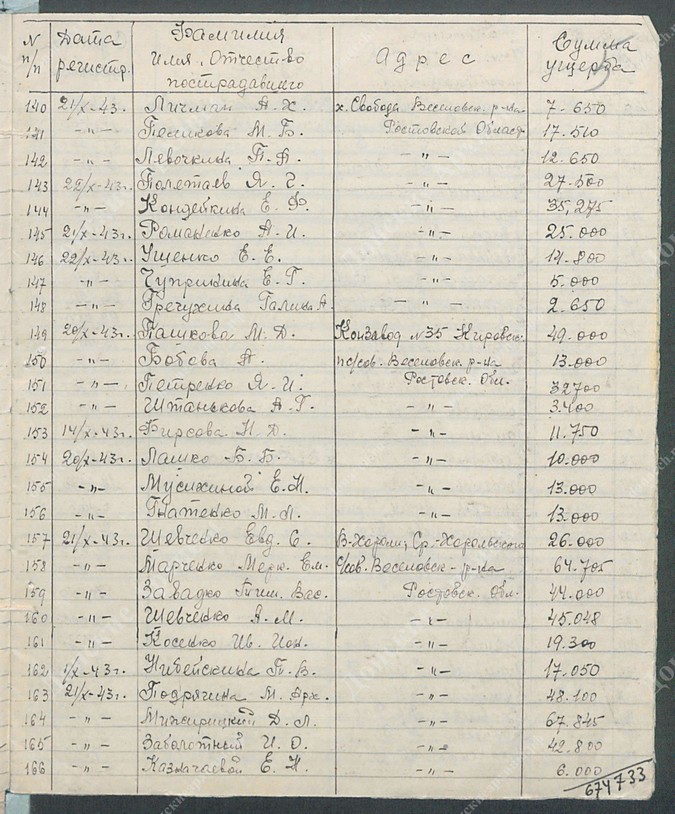 N п/п Дата регистр. Фамилия имя, Отчество пострадавшего Адрес Сумма ущерба
140 21/X-43г. Личман А. Х. х. Свобода Веселовск. р-на 7-650
141 -"- Песикова М. Б. Ростовской Област. 17.510
142 -"- Левочкина П. Д. -"- 12.650
143 22/X-43г. Полетаев Я. Г. -"- 27.500
144 -"- Кондейкина Е. Ф. -"- 35,275
145 21/X-43г. Романенко А. И. -"- 25.000
146 22/X-43г. Ященко Е. Е. -"- 14.800
147 -"- Чуприкина Е. Г. -"- 5.000
148 -"- Гречухина Галина А. -"- 2.650
149 20/X-43г. Пашкова М. Д. Конзавод N35 Кировск. 49.000
150 -"- Бобева А. п/сов. Веселовск. р-на 13.000
151 -"- Петренко Я. И. Ростовск. Обл. 32700
152 -"- Штанькова А. Г. -"- 3.400
153 14/X-43г. Бирсова Н. Д. -"- 11.750
154 20/X-43г. Лашко Б. Б. -"- 10.000
155 -"- Мусихиной Е. Н. -"- 13.000
156 -"- Гнатенко М. Л. -"- 13.000
157 21/X-43г. Шевченко Евд. С. В-Хороли, Ср.-Хорольского 26.000
158 -"- Марченко Ем. с/сов. Веселовск-р-на 64.705
159 -"- Завадко Тим. Вас. Ростовск. Обл. 44.000
160 -"- Шевченко Я. М. -"- 45.048
161 -"- Косенко Ив. Ион. -"- 19.300
162 1/X-43г. П. В. -"- 17.050
163 21/X-43г. Подрячина М. Арх. -"- 48.100
164 -"- Мижирицкий Д. Л. -"- 67.845
165 -"- Заболотный И. О. -"- 42.800
166 -"- Казначаевой Е. Н. -"- 6.000
674733